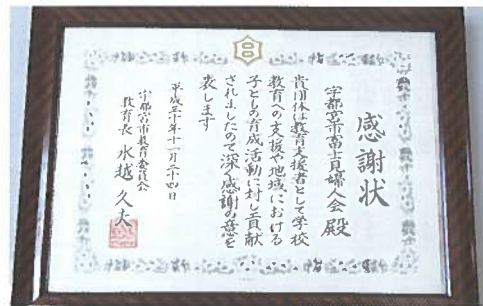 感謝状
宇都宮市富士見婦人会 殿
貴団体は教育支援者として学校
教育への支援や地域における
子どもの育成活動に対し貢献
されましたので深く感謝の意を
表します
平成三十年十一月二十四日
宇都宮市教育委員会
教育長 水越 久夫